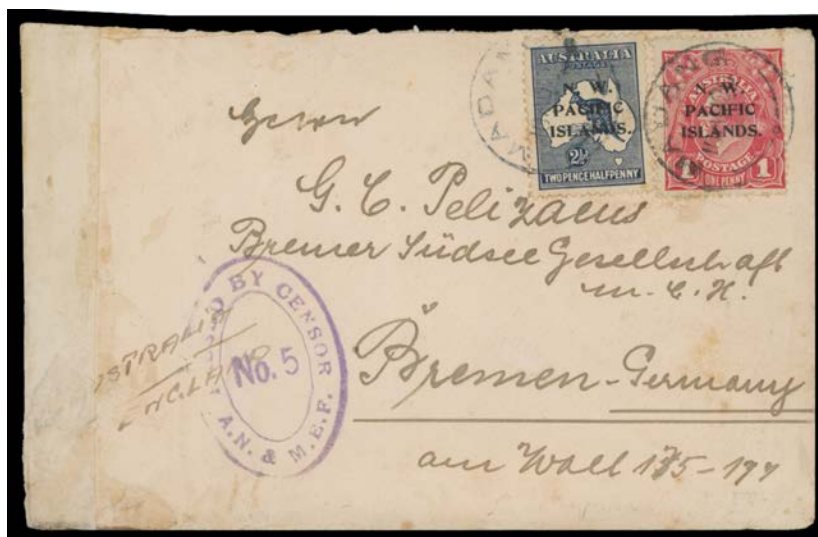 MADANG
AUSTRALIA
POSTAGE
N. W.
PACIFIC
ISLANDS.
2½
TWO PENCE HALFPENNY
MADANG
AUSTRALIA
N. W.
PACIFIC
ISLANDS.
POSTAGE
1 ONE PENNY 1
Herrn
G. C. Pelizaeus
Bremer Südsee Gesellschaft
m. b. H.
Bremen - Germany
am Wall
BY CENSOR
No. 5
A.N. & M.E.F.
STRALIA
ENGLAND